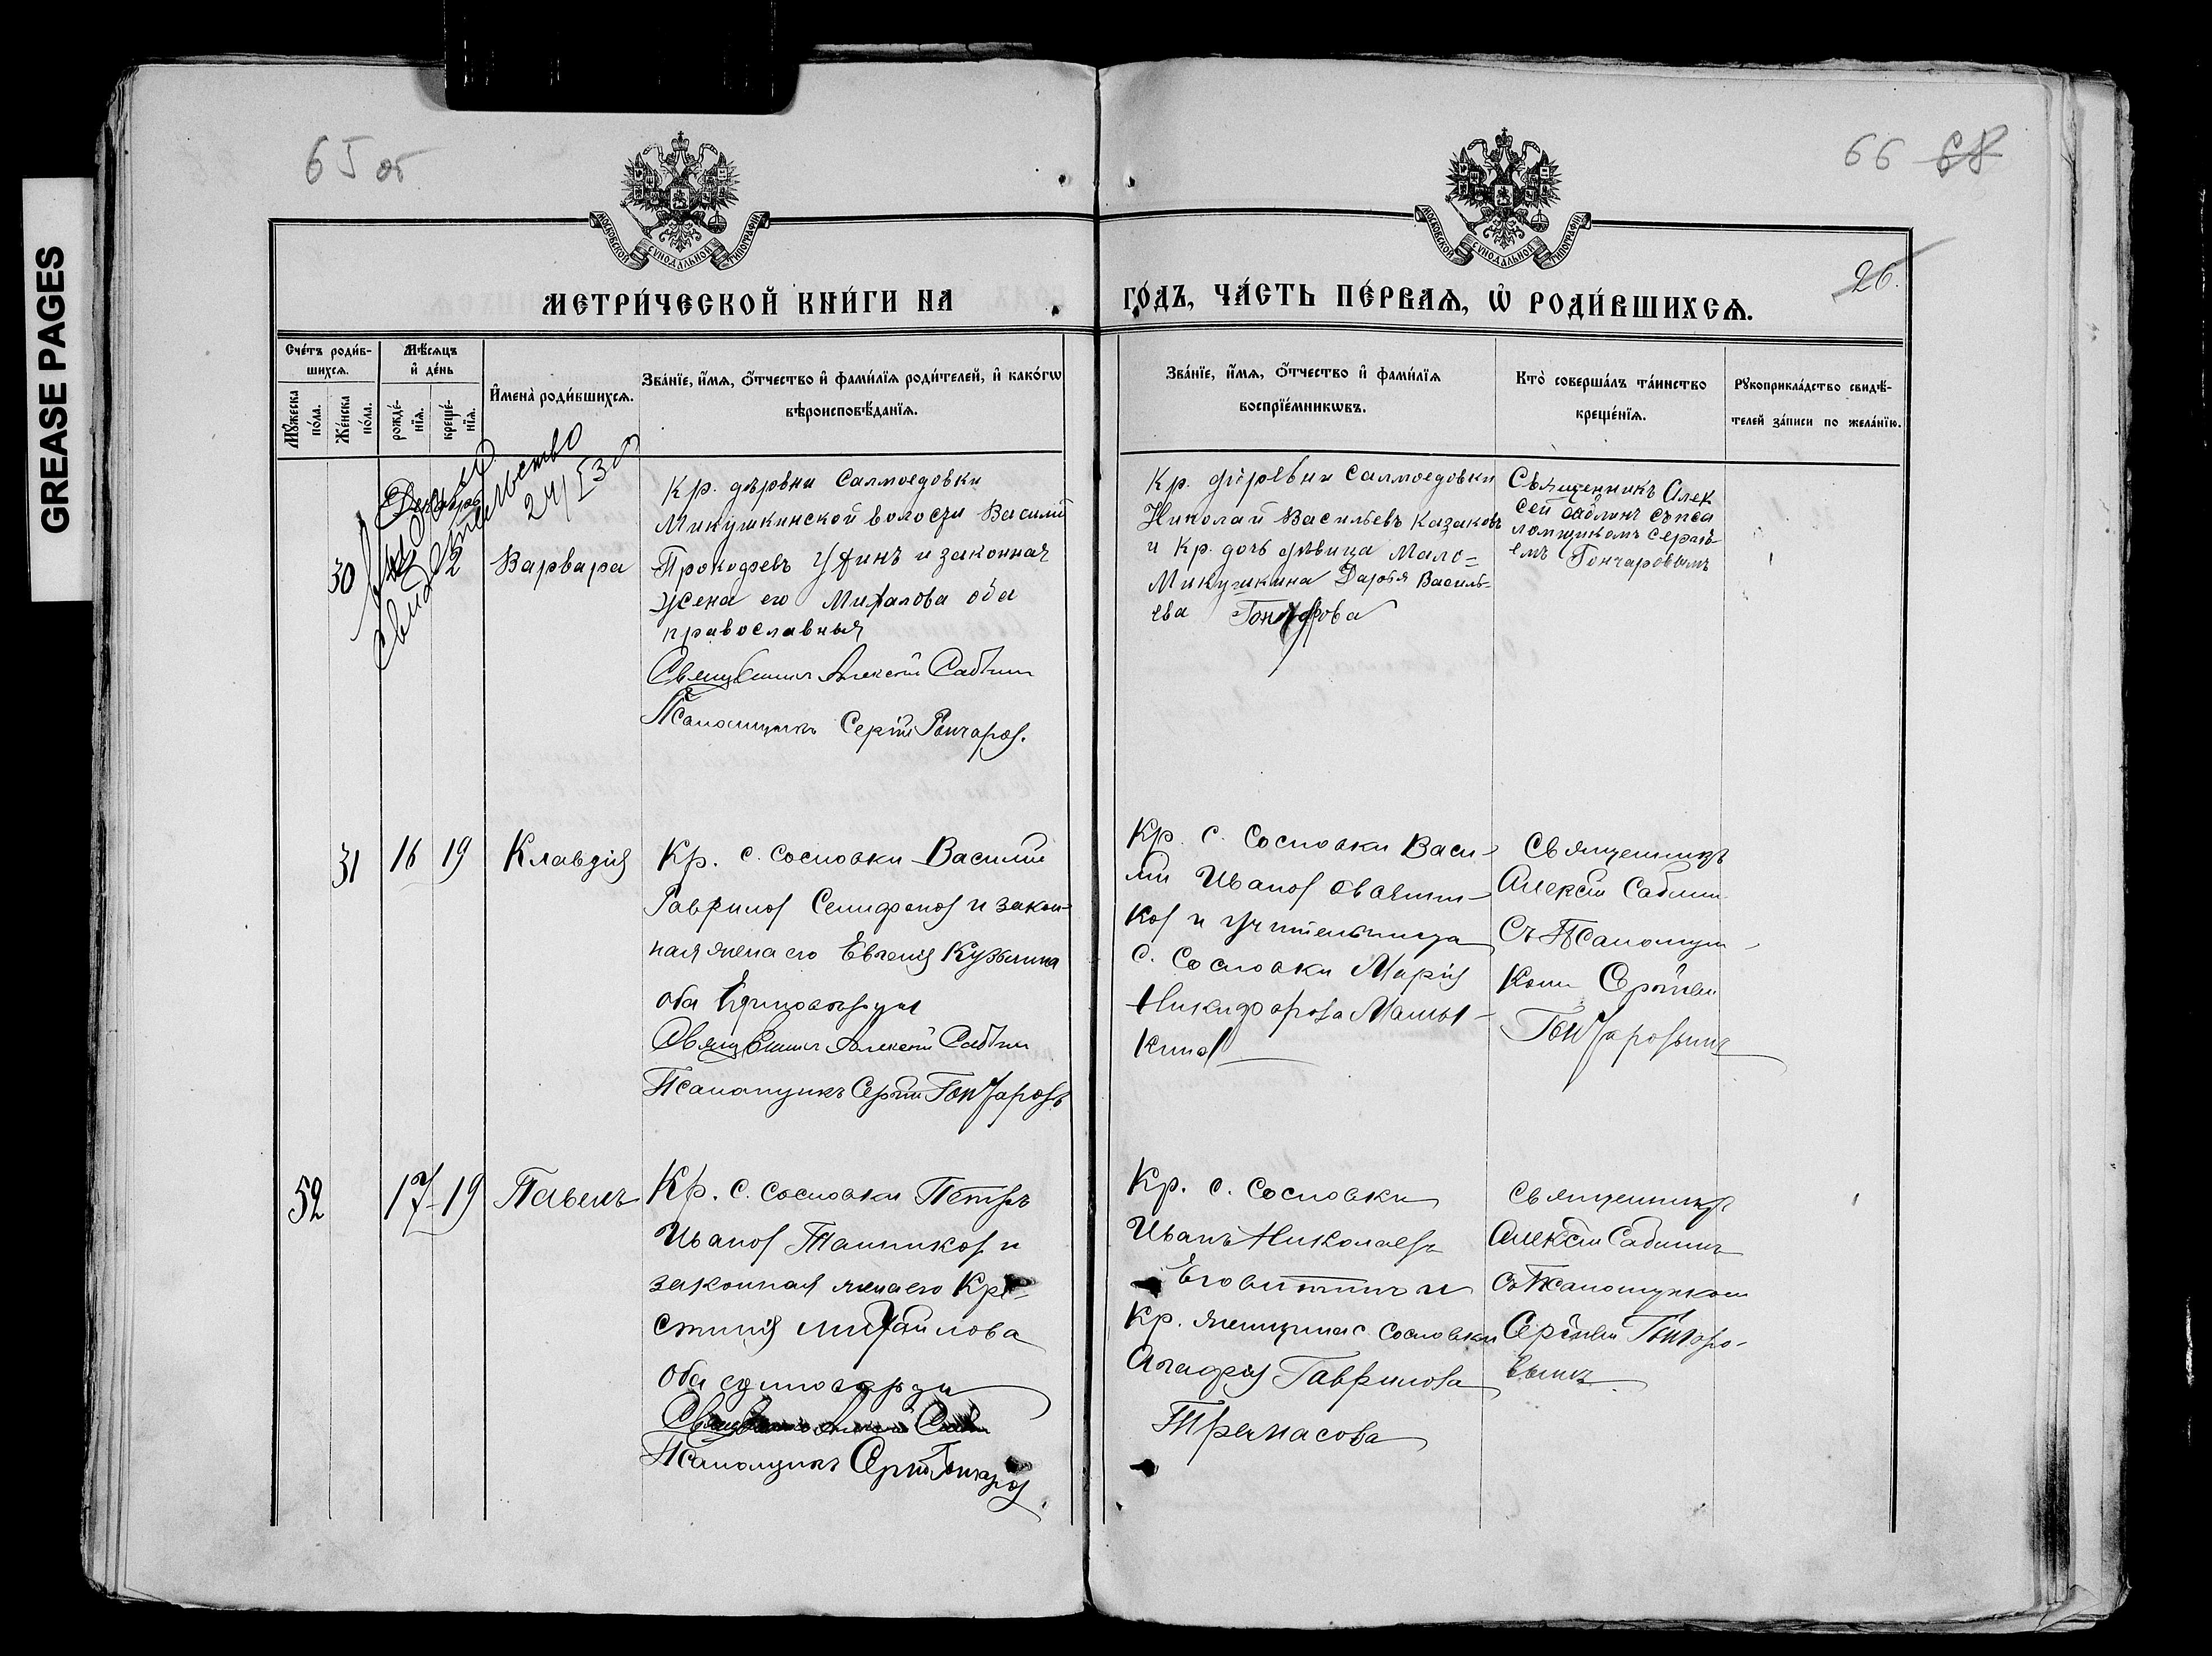 GREASE PAGES
65 об
66 68
26.
МОСКОВСКОЙ СѴНОДАЛЬНОЙ ТИПОГРАФІИ
МОСКОВСКОЙ СѴНОДАЛЬНОЙ ТИПОГРАФІИ
МЕТРИ́ЧЕСКОЙ КНИ́ГИ НА
ГО́ДЪ, ЧА́СТЬ ПЕ́РВАѦ, Ѡ҆ РОДИ́ВШИХСѦ.
Сче́тъ роди́в-
шихсѧ.
Мꙋ́жеска
по́ла.
Же́нска
по́ла.
Мѣ́сѧцъ
и҆ де́нь
рожде́-
нїѧ.
креще́-
нїѧ.
И҆мена̀ роди́вшихсѧ.
Зва́нїе, и҆́мѧ, ѻ҆́тчество и҆ фами́лїѧ роди́телей, и҆ како́гѡ
вѣроисповѣ́данїѧ.
Зва́нїе, и҆́мѧ, ѻ҆́тчество и҆ фами́лїѧ
воспрїе́мникѡвъ.
Кто̀ соверша́лъ та́инство
креще́нїѧ.
Рꙋкоприкла́дство свидѣ́-
телей за́писи по жела́нїю.
Декабрь
свидетельство
24/I 30
30
2
Варвара
Кр. деревни Салмоедовки
Микушкинской волости Василий
Прокофьевъ и законная
жена его оба
православныя
Священникъ Алексей Саблин
Псаломщикъ Сергій Гончаров.
Кр. деревни Салмоедовки
Николай Васильевъ Казаковъ
и Кр. дочь девица Мало=
Микушкина Дарья Василь-
ева Гончарова
Священникъ Алек
сей Саблинъ съ пса
ломщикомъ Сергѣ-
емъ Гончаровымъ
31
16 19
Клавдія
Кр. с. Сосновки Василій
Гаврилов и закон-
ная жена его Евгенія Кузьмина
оба Единоверцы
Священникъ Алексей Саблин
Псаломщикъ Сергій Гончаровъ
Кр. с. Сосновки Васи-
лій Иванов Овчинни-
ков и учительница
с. Сосновки Марія
Никифорова
Священникъ
Алексей Саблин
съ Псаломщи-
ком Сергіем
Гончаровымъ
52
17 19
Павелъ
Кр. с. Сосновки Петръ
Иванов и
законная жена его Кри-
стинія Михайлова
Оба единоверцы
Священникъ Алексей Саблин
Псаломщикъ Сергій Гончаров
Кр. с. Сосновки
Иванъ Николаевъ
и
Кр. женщина с. Сосновки
Агафія Гаврилова
Тремасова
Священникъ
Алексей Саблинъ
съ Псаломщиком
Сергіем Гончаро-
вымъ